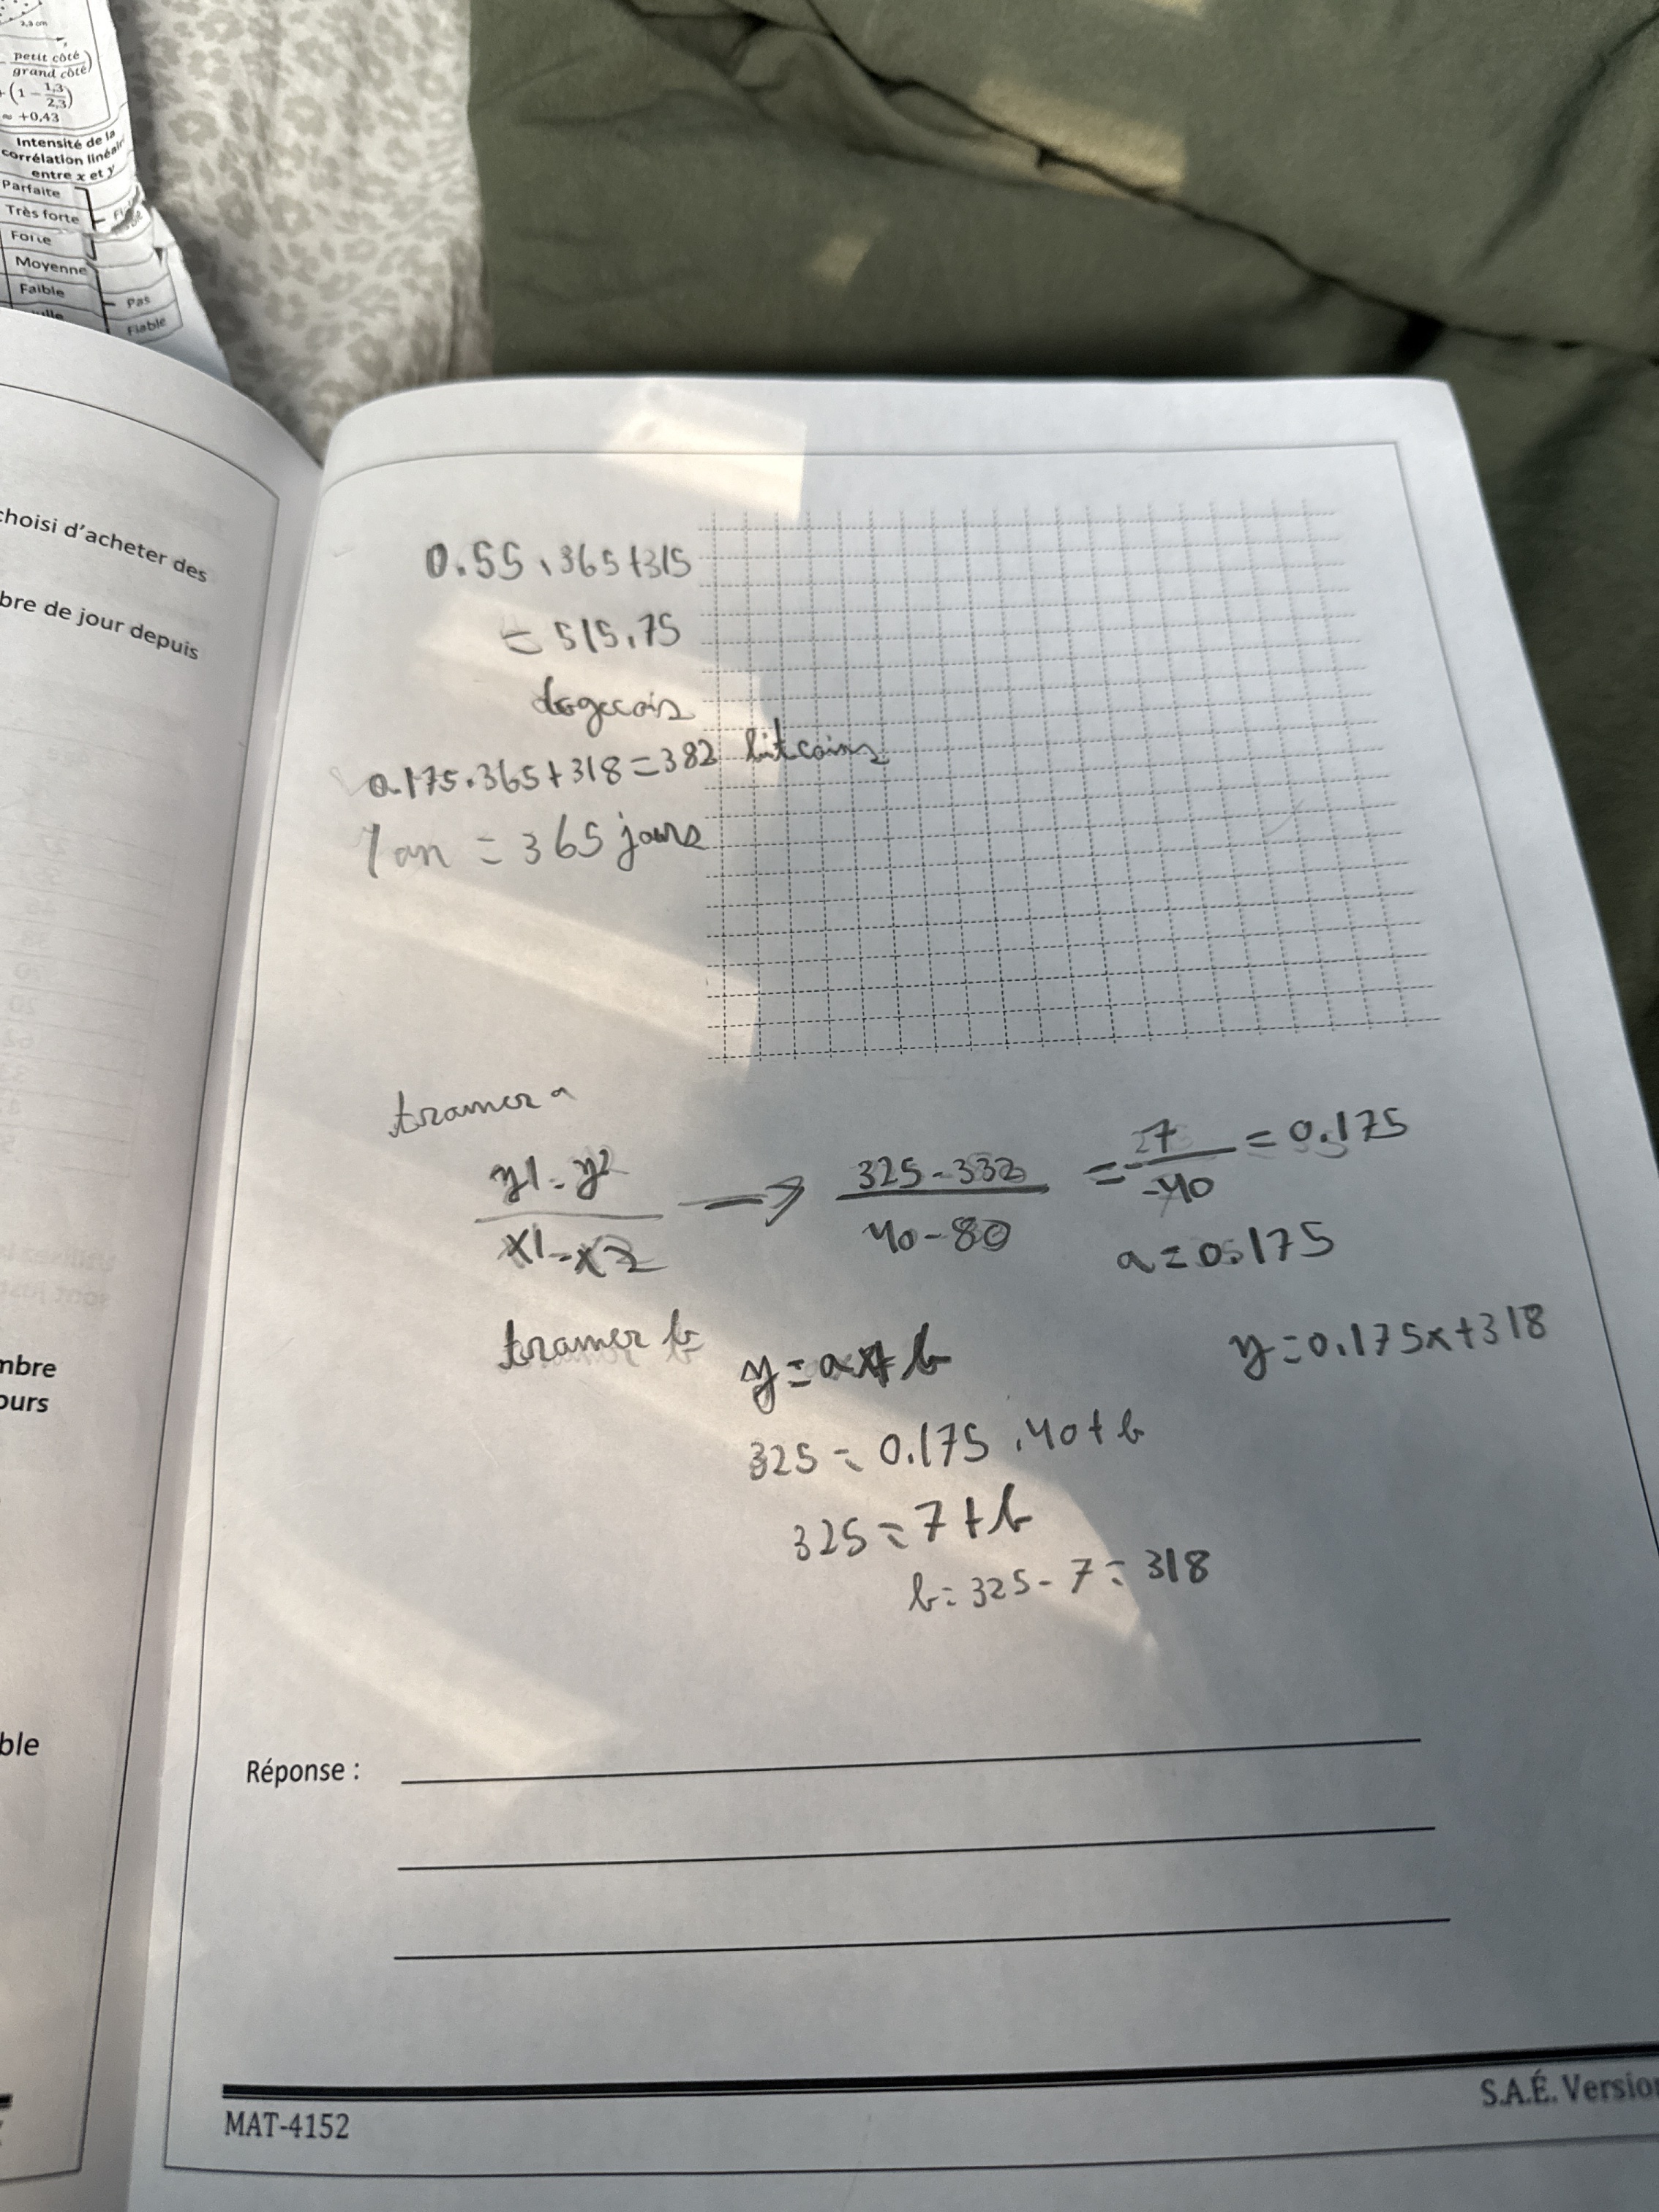 2,3 cm
petit côté
grand côté
(1 - 1,3
2,3)
≈ +0,43
Intensité de la
corrélation linéair
entre x et y
Parfaite
Très forte
Forte
Moyenne
Faible
Pas
Fiable
choisi d'acheter des
bre de jour depuis
mbre
ours
ble
0.55 . 365 + 315
= 515.75
dogecois
0.175 . 365 + 318 = 382 bitcoins
1 an = 365 jours
tramer a
y1 - y2
x1 - x2
→
325 - 332
40 - 80
= 7
-40
= 0.175
a = 0.175
tramer b
y = ax + b
y = 0.175x + 318
325 = 0.175 . 40 + b
325 = 7 + b
b = 325 - 7 = 318
Réponse :
MAT-4152
S.A.É. Version